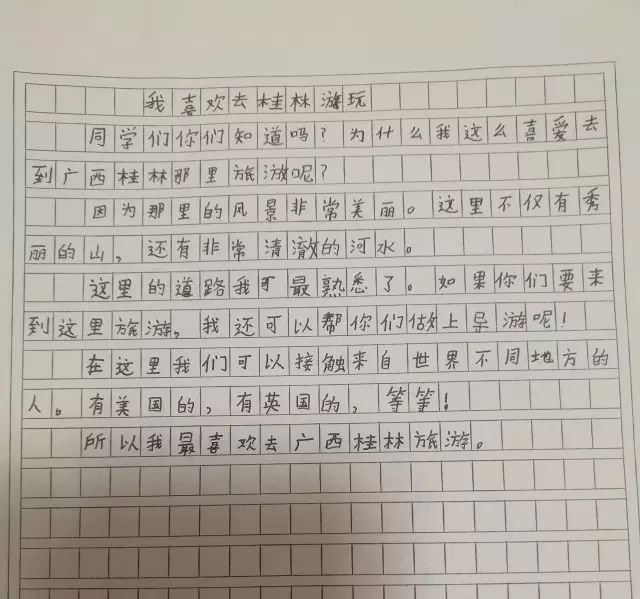 我喜欢去桂林游玩
同学们你们知道吗?为什么我这么喜爱去
到广西桂林那里旅游呢?
因为那里的风景非常美丽。这里不仅有秀
丽的山,还有非常清澈的河水。
这里的道路我可最熟悉了。如果你们要来
到这里旅游,我还可以帮你们做上导游呢!
在这里我们可以接触来自世界不同地方的
人。有美国的,有英国的,等等!
所以我最喜欢去广西桂林旅游。